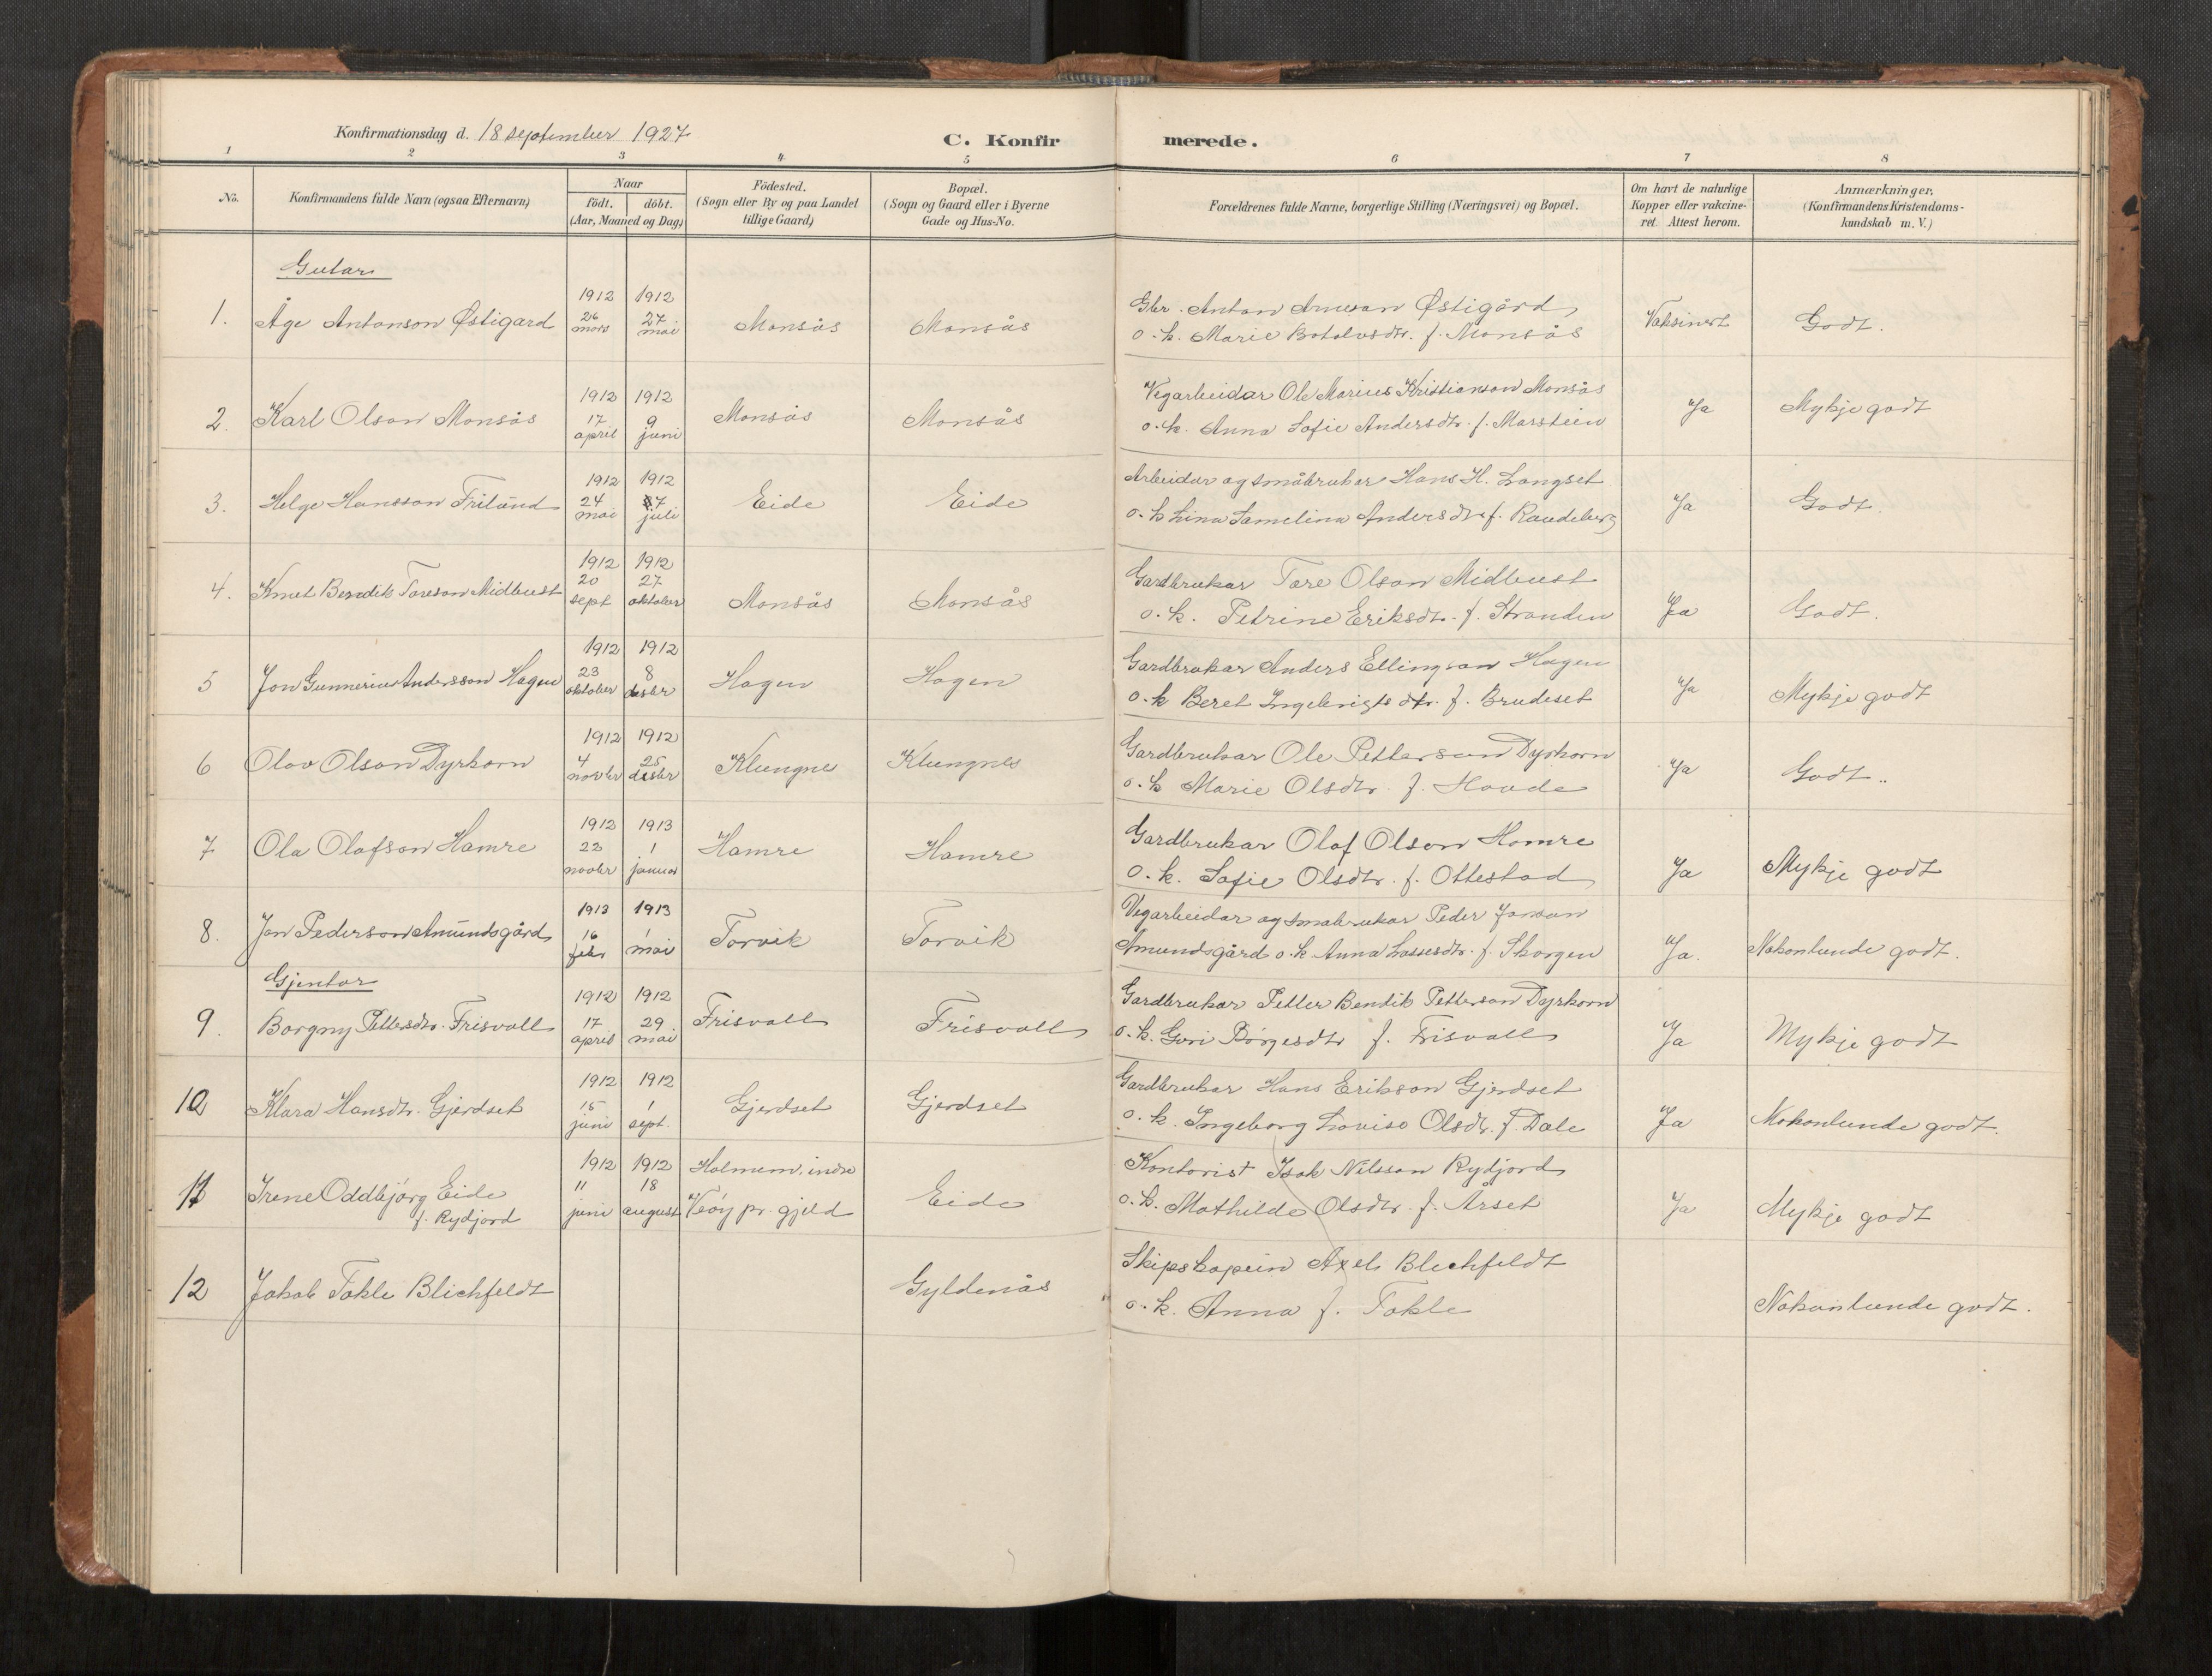 Konfirmationsdag d. 18 september 1927
C. Konfirmerede.
1 2 3 4 5 6 7 8
No.
Konfirmandens fulde Navn (ogsaa Efternavn)
Naar
födt. döbt.
(Aar, Maaned og Dag)
Födested.
(Sogn eller By og paa Landet
tillige Gaard)
Bopæl.
(Sogn og Gaard eller i Byerne
Gade og Hus-No.
Forældrenes fulde Navne, borgerlige Stilling (Næringsvei) og Bopæl.
Om havt de naturlige
Kopper eller vakcine-
ret. Attest herom.
Anmærkninger.
(Konfirmandens Kristendoms-
kundskab m. V.)
Gutar
1. Åge Antonson Østigard
1912 26 mars
1912 27 mai
Monsås
Monsås
Gbr. Anton Arneson Østigård
o. k. Marie Botolvsdtr. f. Monsås
Vaksinert
Godt.
2. Karl Olson Monsås
1912 17 april
1912 9 juni
Monsås
Monsås
Vegarbeidar Ole Marius Kristianson Monsås
o. k. Anna Sofie Andersdtr. f. Marstein
Ja
Mykje godt
3. Helge Hansson Frilund
1912 24 mai
1912 7 juli
Eide
Eide
Arbeidar og småbrukar Hans H. Langset
o. k Lina Samelina Andersdtr f. Raudeberg
Ja
Godt
4. Knut Bendik Toreson Midbust
1912 20 sept
1912 27 oktober
Monsås
Monsås
Gardbrukar Tore Olson Midbust
o. k. Petrine Eriksdtr. f. Stranden
Ja
Godt.
5 Jon Gunnerius Andersson Hagen
1912 23 oktober
1912 8 desbr
Hagen
Hagen
Gardbrukar Anders Ellingson Hagen
o. k Beret Ingebrigtsdtr. f. Brudeset
Ja
Mykje godt
6 Olav Olson Dyrkorn
1912 4 novbr
1912 25 desbr
Klungnes
Klungnes
Gardbrukar Ole Petterson Dyrkorn
o. k Marie Olsdtr. f. Hovde
Ja
Godt..
7 Ola Olafson Hamre
1912 23 novbr
1913 1 januar
Hamre
Hamre
Gardbrukar Olaf Olson Hamre
o. k. Sofie Olsdtr. f. Ottestad
Ja
Mykje godt
8. Jon Pederson Amundsgård
1913 16 febr
1913 1 mai
Torvik
Torvik
Vegarbeidar og småbrukar Peder Jonson
Amundsgård o. k Anna Lassesdtr. f. Skorgen
Ja.
Nokonlunde godt.
Gjentor
9. Borgny Pettersdtr. Frisvall
1912 17 april
1912 29 mai
Frisvall
Frisvall
Gardbrukar Petter Bendik Petterson Dyrkorn
o. k. Guri Børgesdtr f. Frisvall
Ja
Mykje godt
10 Klara Hansdtr. Gjerdset
1912 15 juni
1912 1 sept.
Gjerdset
Gjerdset
Gardbrukar Hans Erikson Gjerdset
o. k. Ingeborg Lovise Olsdtr. f. Dale
Ja
Nokonlunde godt.
11 Irene Oddbjørg Eide
f. Rydjord
1912 11 juni
1912 18 august
Holmem, indre
Veøy pr. gjeld
Eide
Kontorist Isak Nilsson Rydjord
o. k. Mathilde Olsdtr. f. Årset
Ja
Mykje godt
12 Jakob Takle Blichfeldt
Gyldenås
Skipskaptein Axel Blichfeldt
o. k. Anna f. Takle
Nokonlunde godt.